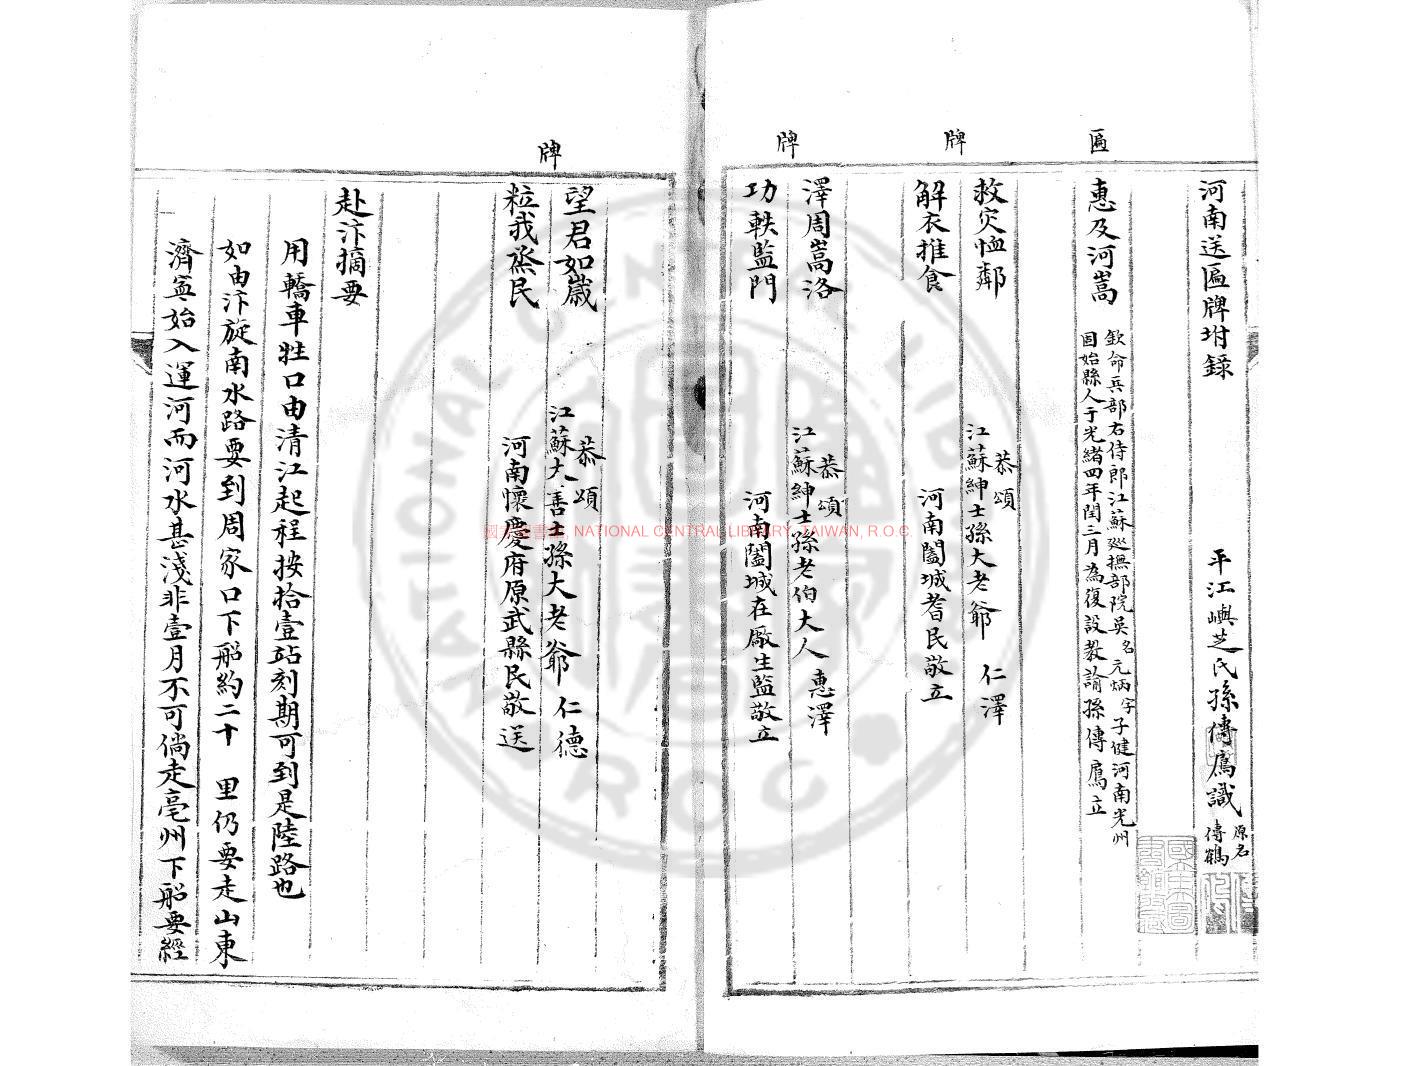 河南送匾牌坿錄
平江嶼芝氏孫傳鳶識 原名傳鶴
匾
惠及河嵩
欽命兵部右侍郎江蘇巡撫部院吳名元炳字子健河南光州
固始縣人于光緒四年閏三月為復設教諭孫傳鳶立
牌
救灾恤鄰
恭頌
江蘇紳士孫大老爺 仁澤
解衣推食
河南闔城耆民敬立
牌
澤周嵩洛
恭頌
江蘇紳士孫老伯大人 惠澤
功軼監門
河南闔城在廠生監敬立
牌
望君如歲
恭頌
江蘇大善士孫大老爺 仁德
粒我烝民
河南懷慶府原武縣民敬送
赴汴摘要
用轎車牲口由清江起程按拾壹站刻期可到是陸路也
如由汴旋南水路要到周家口下船約二十 里仍要走山東
濟寧始入運河而河水甚淺非壹月不可倘走亳州下船要經
國家圖書館, NATIONAL CENTRAL LIBRARY, TAIWAN, R.O.C.